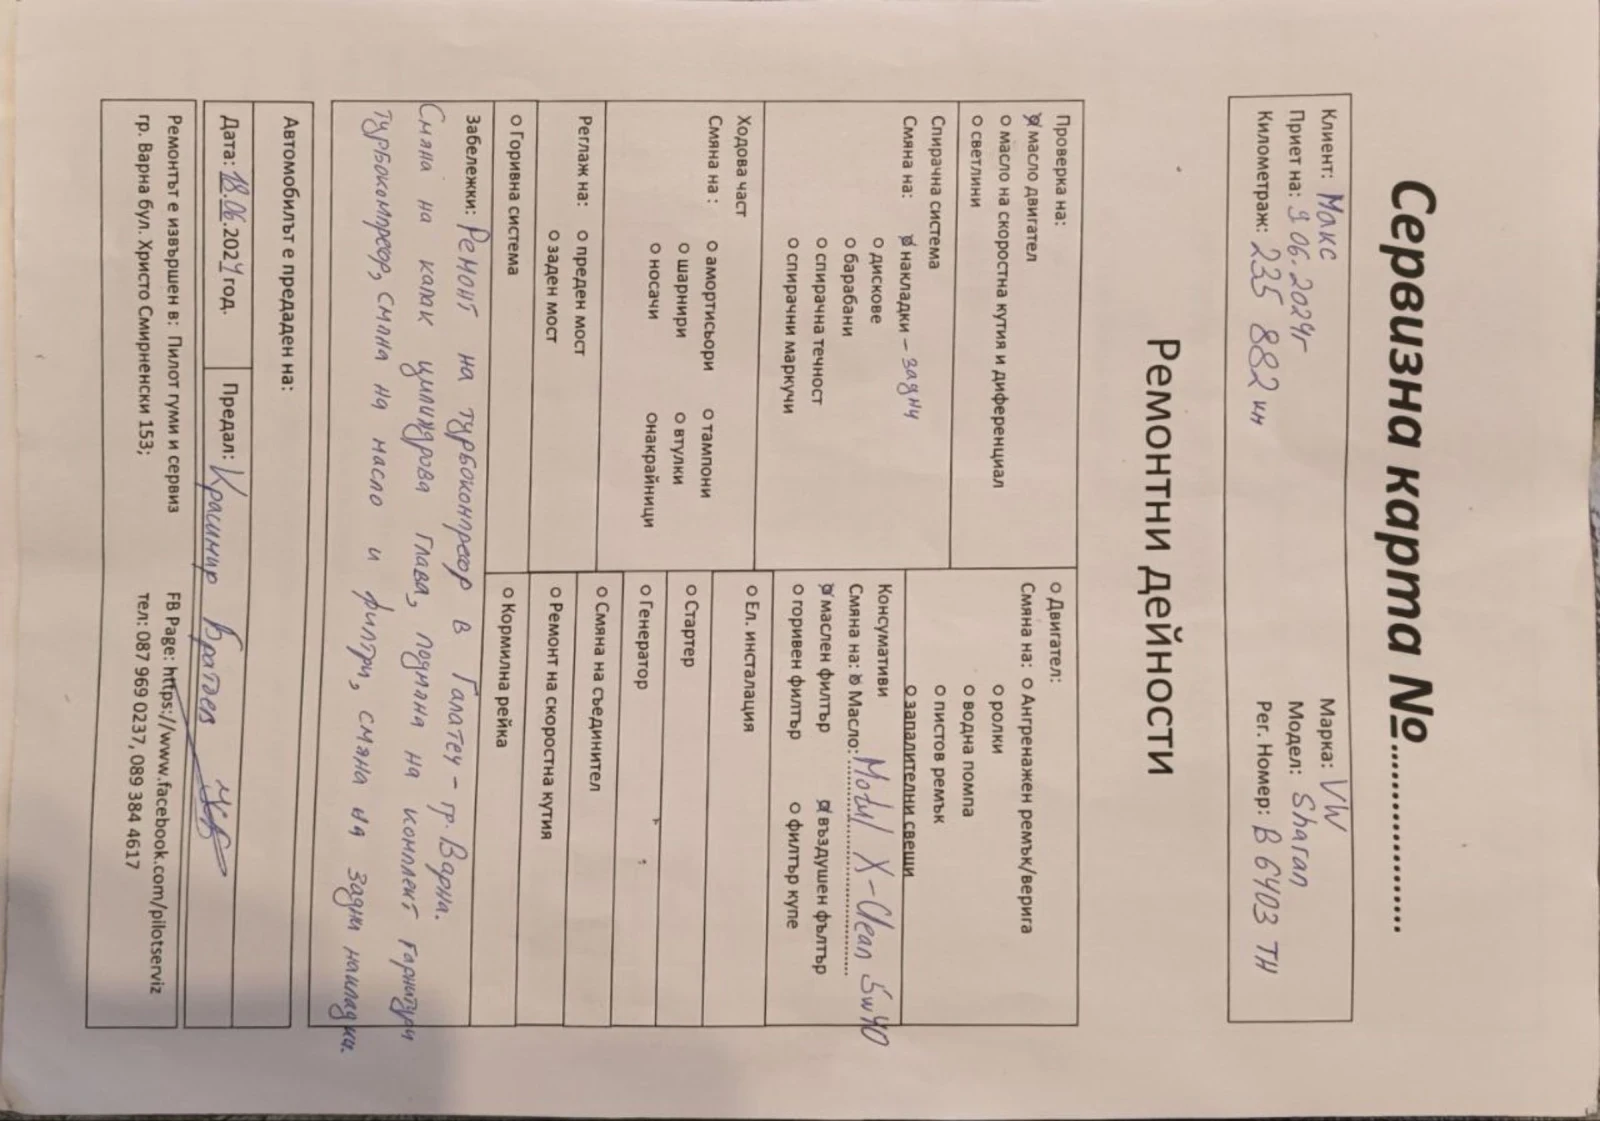 Сервизна карта №..................
Клиент: Макс
Марка: VW
Приет на: 9.06.2024г
Модел: Sharan
Километраж: 235 882 км
Рег. Номер: В 6403 ТН
Ремонтни дейности
Проверка на:
масло двигател
о масло на скоростна кутия и диференциал
о светлини
Спирачна система
Смяна на: накладки – задни
о дискове
о барабани
о спирачна течност
о спирачни маркучи
Ходова част
Смяна на : о амортисьори о тампони
о шарнири о втулки
о носачи онакрайници
Реглаж на: о преден мост
о заден мост
о Горивна система
о Двигател:
Смяна на: о Ангренажен ремък/верига
о ролки
о водна помпа
о пистов ремък
о запалителни свещи
Консумативи
Смяна на: Масло: Motul X-Clean 5w40
маслен филтър въздушен фълтър
о горивен филтър о филтър купе
о Ел. инсталация
о Стартер
о Генератор
о Смяна на съединител
о Ремонт на скоростна кутия
о Кормилна рейка
Забележки: Ремонт на турбоконпресор в Галатеу – гр. Варна.
Смяна на капак цилиндрова глава, подмяна на комплект гарнитури
турбокомпресор, смяна на масло и филтри, смяна на задни накладки.
Автомобилът е предаден на:
Дата: 18.06.2024 год. Предал: Красимир Братоев
Ремонтът е извършен в: Пилот гуми и сервиз FB Page: https://www.facebook.com/pilotserviz
гр. Варна бул. Христо Смирненски 153; тел: 087 969 0237, 089 384 4617